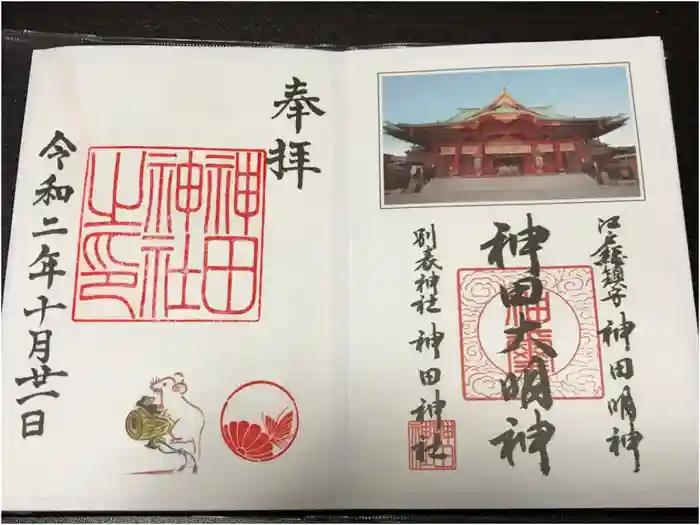 江戸総鎮守 神田明神
神田大明神
別表神社 神田神社
奉拝
神田
神社
之印
令和二年十月廿一日